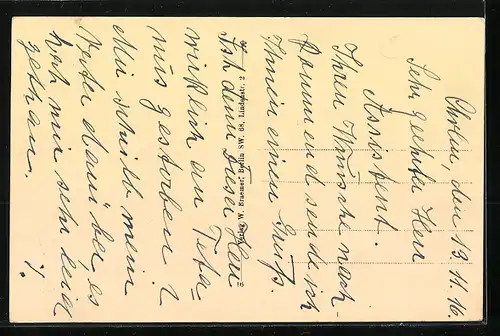 Berlin, den 19.11.16
Sehr geehrter Herr
Assistent.
Ihrem Wunsche nach-
kommend sende ich
Ihnen einen Gruß.
Ist denn dieser Herr
wirklich an Teta-
nus gestorben?
Mir schrieb mein
Vetter darüber, es
hat mir sehr leid
getan.
W. Braemer, Berlin SW. 68, Lindenstr. 2